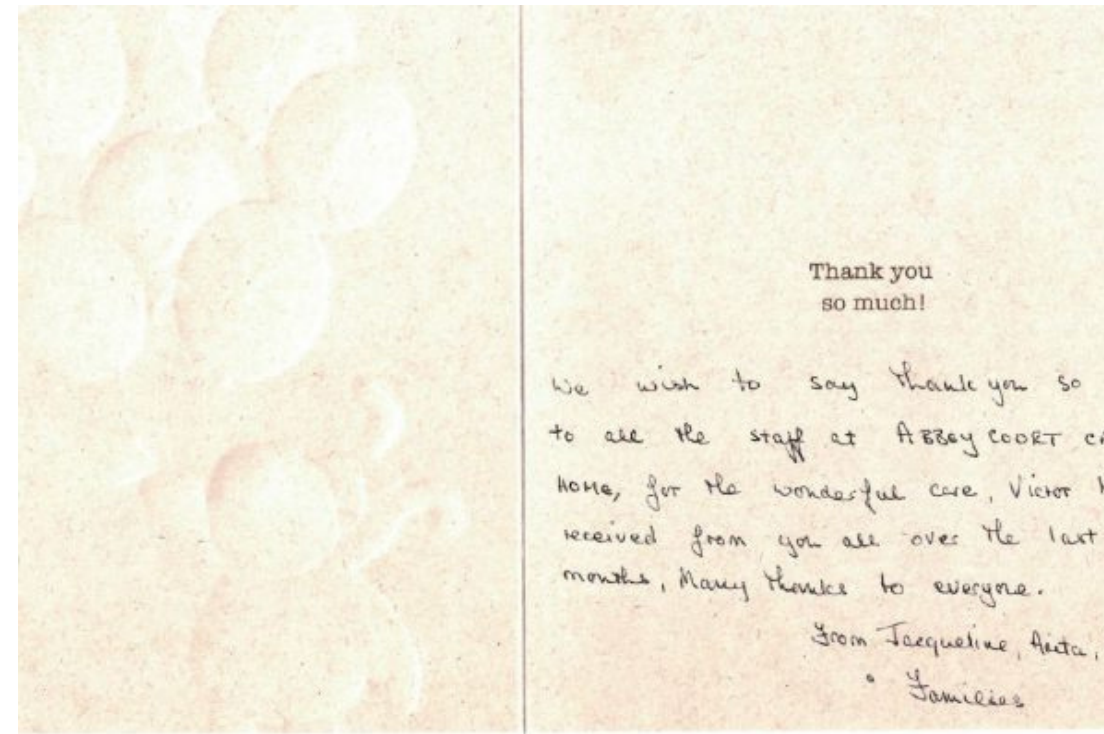 Thank you
so much!
We wish to say thank you so
to all the staff at ABBEY COURT
HOME, for the wonderful care, Victor
received from you all over the last
months, Many thanks to everyone.
From Jacqueline,
Families